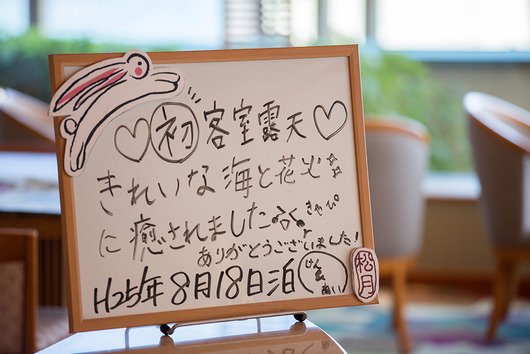 ♡初客室露天♡
きれいな海と花火
に癒されました
きゃぴ
ありがとうございました!
H25年8月18日泊
松月